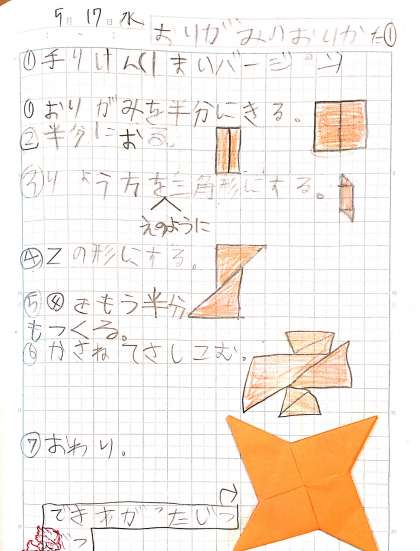 5月17日水
おりがみのおりかた①
①手りけん(1まいバージョン)
①おりがみを半分にきる。
②半分におる。
③りょう方を三角形にする。
えのように
④Zの形にする。
⑤④をもう半分
もつくる。
⑥かさねてさしこむ。
⑦おわり。
できあがったじつ